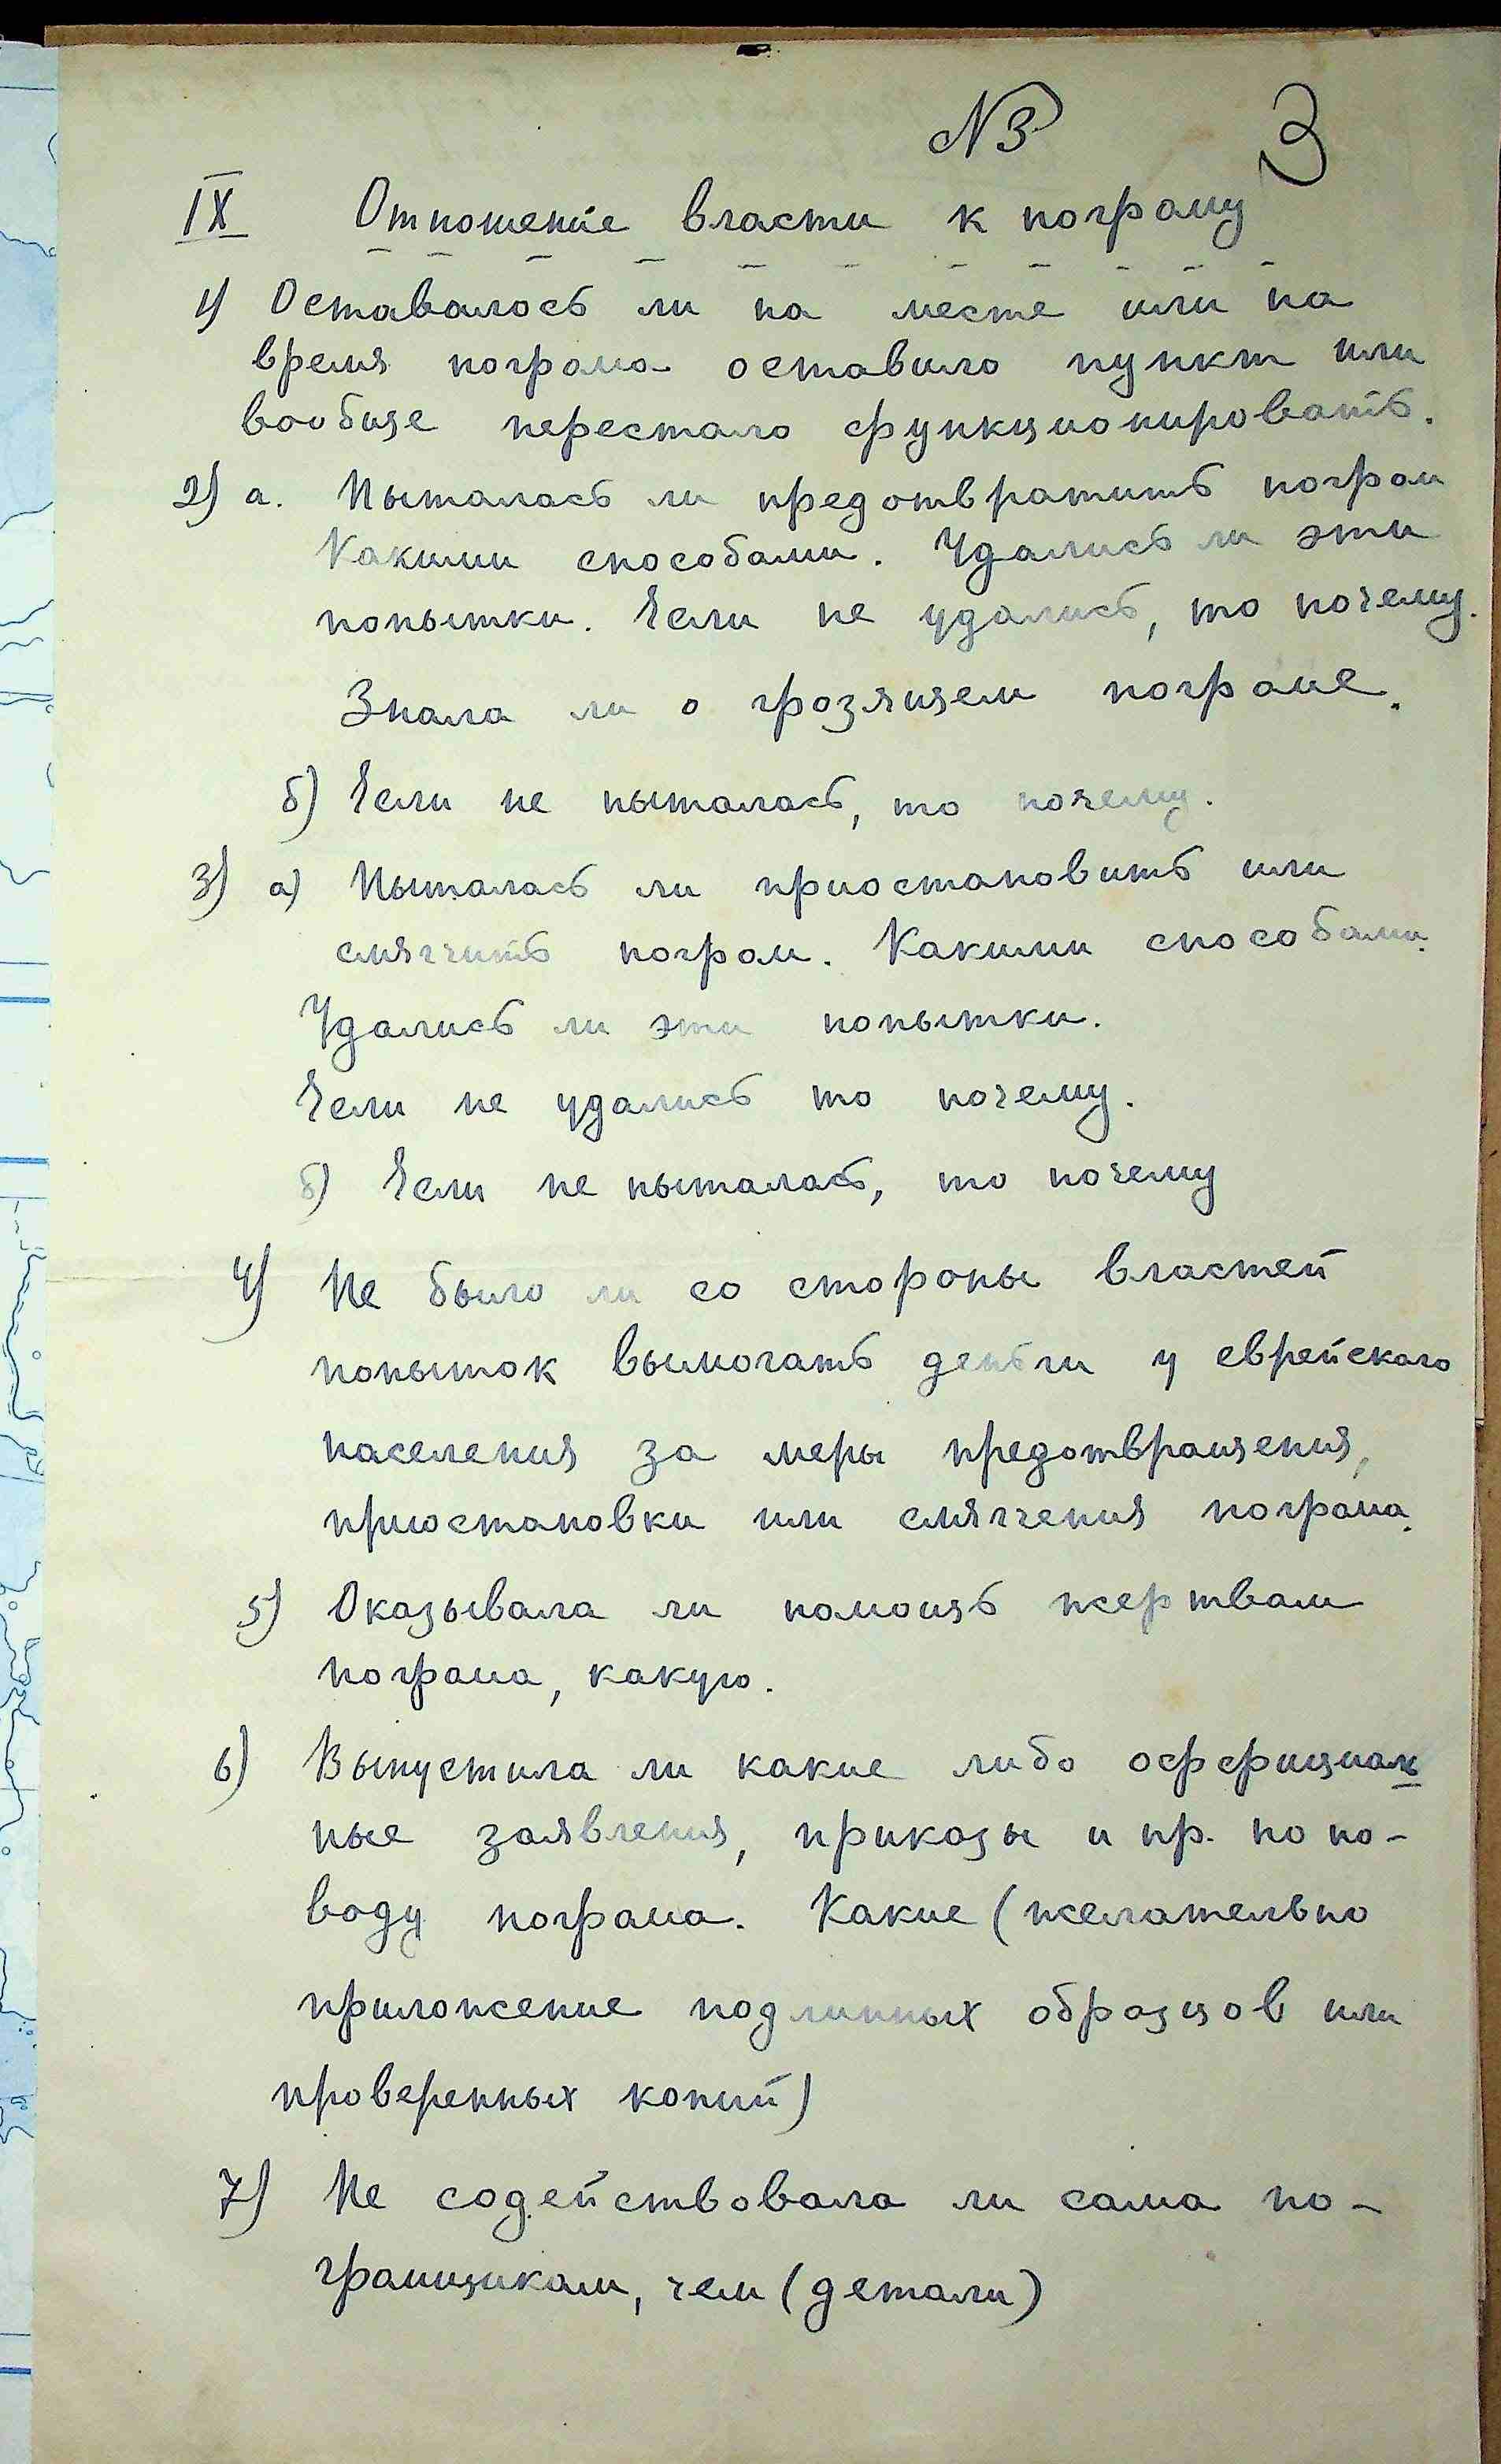 №3 3
IX Отношенiе власти к погрому
1) Оставалось ли на месте или на
время погрома оставило пункт или
вообще перестало функционировать.
2) а. Пыталась ли предотвратить погром
Какими способами. Удались ли эти
попытки. Если не удались, то почему.
Знала ли о грозящем погроме.
б) Если не пыталась, то почему.
3) а) Пыталась ли приостановить или
смягчить погром. Какими способами.
Удались ли эти попытки.
Если не удались то почему.
б) Если не пыталась, то почему
4) Не было ли со стороны властей
попыток вымогать деньги у еврейского
населения за меры предотвращения,
приостановки или смягчения погрома.
5) Оказывала ли помощь жертвам
погрома, какую.
6) Выпустила ли какие либо оффициаль
ные заявления, приказы и пр. по по-
воду погрома. Какие (желательно
приложение подлинных образцов или
проверенных копий)
7) Не содействовала ли сама по-
громщикам, чем (детали)